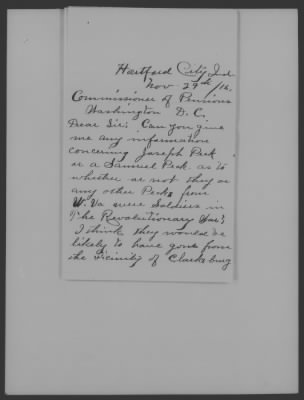 Hartford City, Ind.
Nov 29th/16.
Commissioner of Pensions
Washington D.C.
Dear Sir; Can you give
me any information
concerning Joseph Peck
or a Samuel Peck as to
whether or not they or
any other Pecks from
W. Va were Soldiers in
the Revolutionary War?
I think they would be
likely to have gone from
the vicinity of Clarksburg